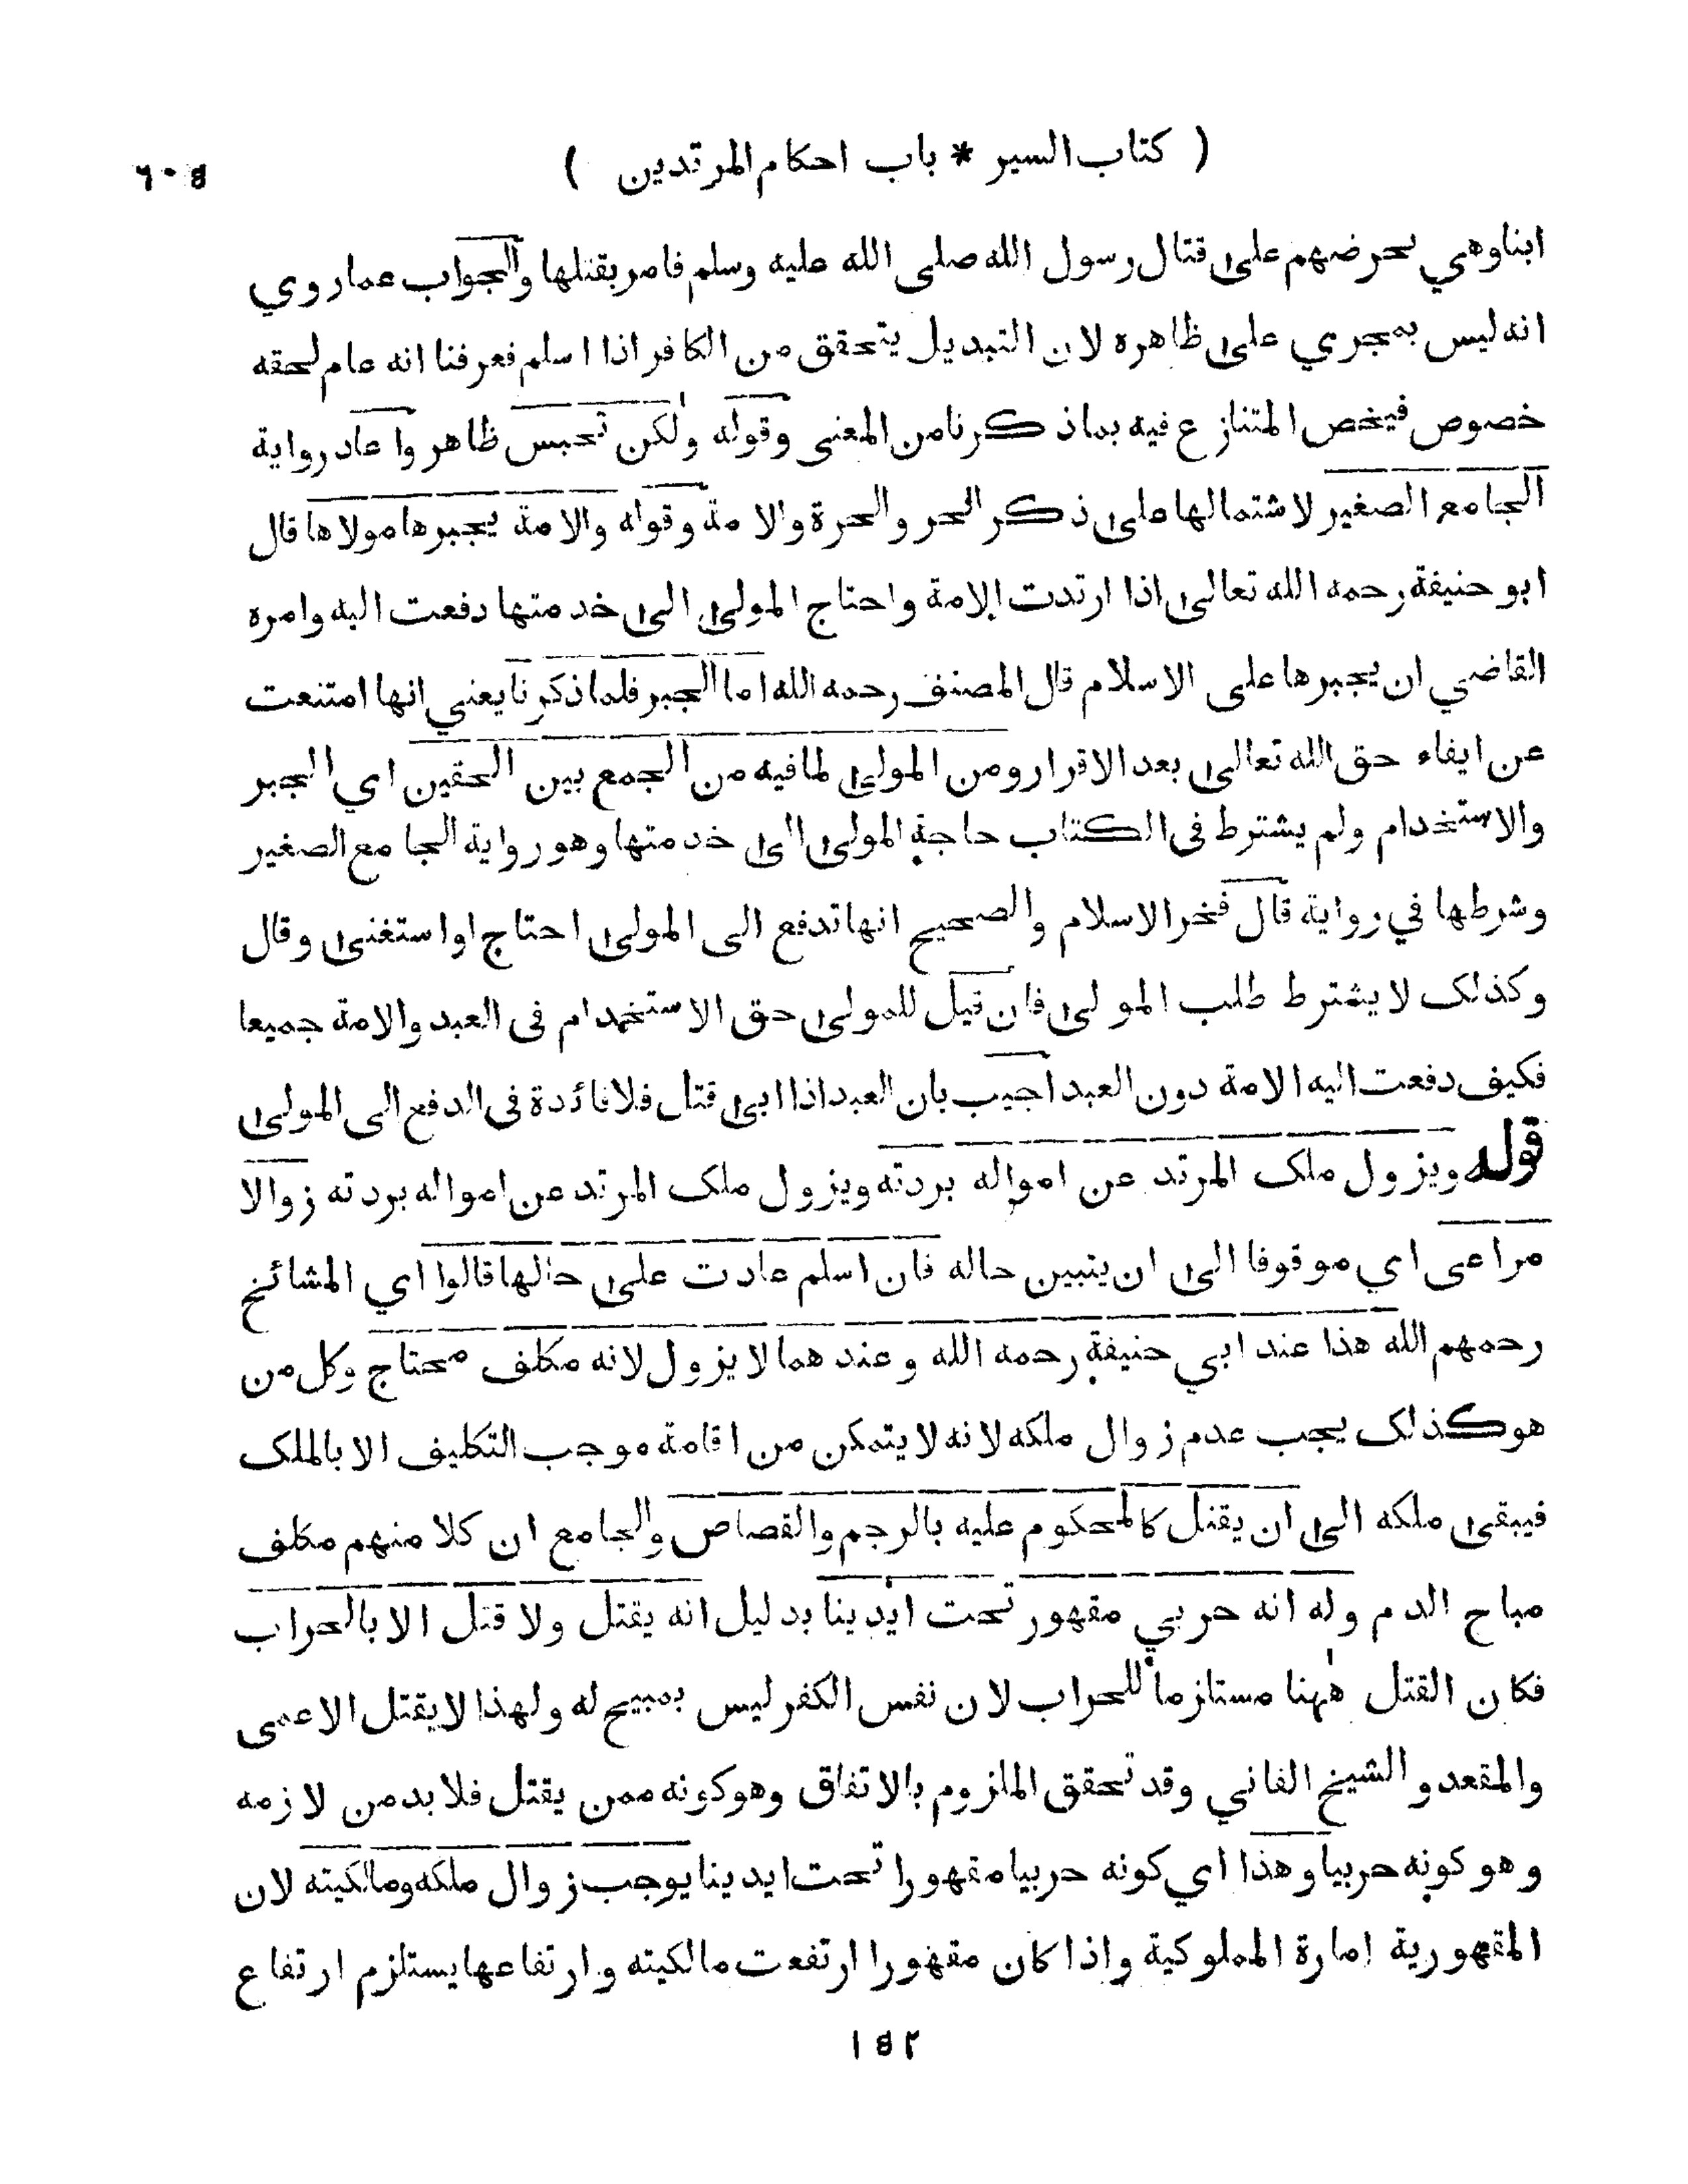 ( كتاب السير * باب احكام المرتدين )
٦٠٥
ابنا وهي تحرضهم على قتال رسول الله صلى الله عليه وسلم فامر بقتلها والجواب عما روي
انه ليس بمجري على ظاهره لان التبديل يتحقق من الكافر اذا اسلم فعرفنا انه عام لحقه
خصوص فيخص المتنازع فيه بما ذكرنا من المعنى وقوله ولكن تحبس ظاهر واعاد رواية
الجامع الصغير لاشتمالها على ذكر الحر والحرة والامة وقوله والامة يجبرها مولاها قال
ابو حنيفة رحمه الله تعالى اذا ارتدت الامة واحتاج المولى الى خدمتها دفعت اليه وامره
القاضي ان يجبرها على الاسلام قال المصنف رحمه الله اما الجبر فلما ذكرنا يعني انها امتنعت
عن ايفاء حق الله تعالى بعد الاقرار ومن المولى لما فيه من الجمع بين الحقين اي الجبر
والاستخدام ولم يشترط في الكتاب حاجة المولى الى خدمتها وهو رواية الجامع الصغير
وشرطها في رواية قال فخر الاسلام والصحيح انها تدفع الى المولى احتاج او استغنى وقال
وكذلك لا يشترط طلب المولى فان قيل للمولى حق الاستخدام في العبد والامة جميعا
فكيف دفعت اليه الامة دون العبد اجيب بان العبد اذا ابى قتل فلا فائدة في الدفع الى المولى
قوله ويزول ملك المرتد عن امواله بردته ويزول ملك المرتد عن امواله بردته زوالا
مراعى اي موقوفا الى ان يتبين حاله فان اسلم عادت على حالها قالوا اي المشائخ
رحمهم الله هذا عند ابي حنيفة رحمه الله وعندهما لا يزول لانه مكلف محتاج وكل من
هو كذلك يجب عدم زوال ملكه لانه لا يتمكن من اقامة موجب التكليف الا بالملك
فيبقى ملكه الى ان يقتل كالمحكوم عليه بالرجم والقصاص والجامع ان كلا منهم مكلف
مباح الدم وله انه حربي مقهور تحت ايدينا بدليل انه يقتل ولا قتل الا بالحراب
فكان القتل ههنا مستلزما للحراب لان نفس الكفر ليس بمبيح له ولهذا لا يقتل الاعمى
والمقعد والشيخ الفاني وقد تحقق الملزوم بالاتفاق وهو كونه ممن يقتل فلا بد من لازمه
وهو كونه حربيا وهذا اي كونه حربيا مقهورا تحت ايدينا يوجب زوال ملكه ومالكيته لان
المقهورية امارة المملوكية واذا كان مقهورا ارتفعت مالكيته وارتفاعها يستلزم ارتفاع
١٥٢